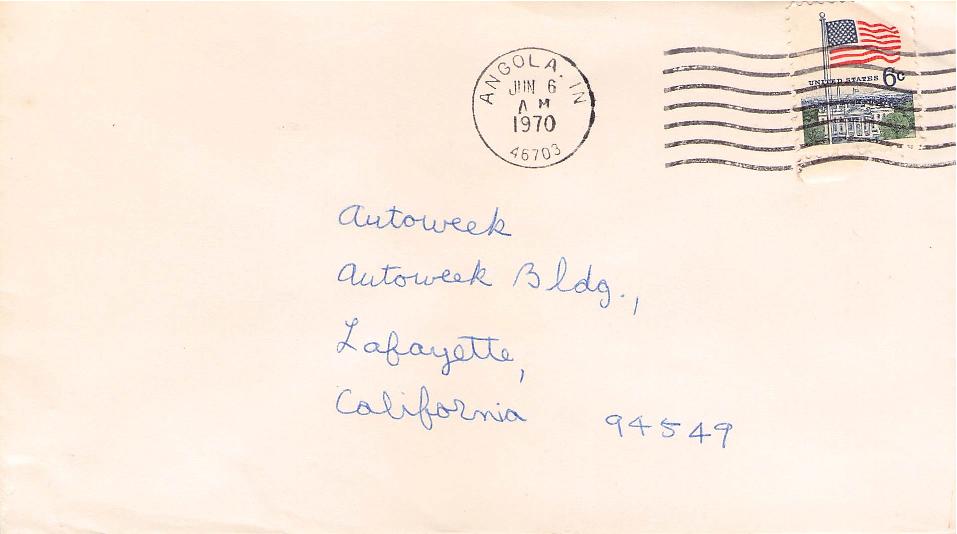 ANGOLA, IN
JUN 6
AM
1970
46703
UNITED STATES 6c
Autoweek
Autoweek Bldg.,
Lafayette,
California 94549